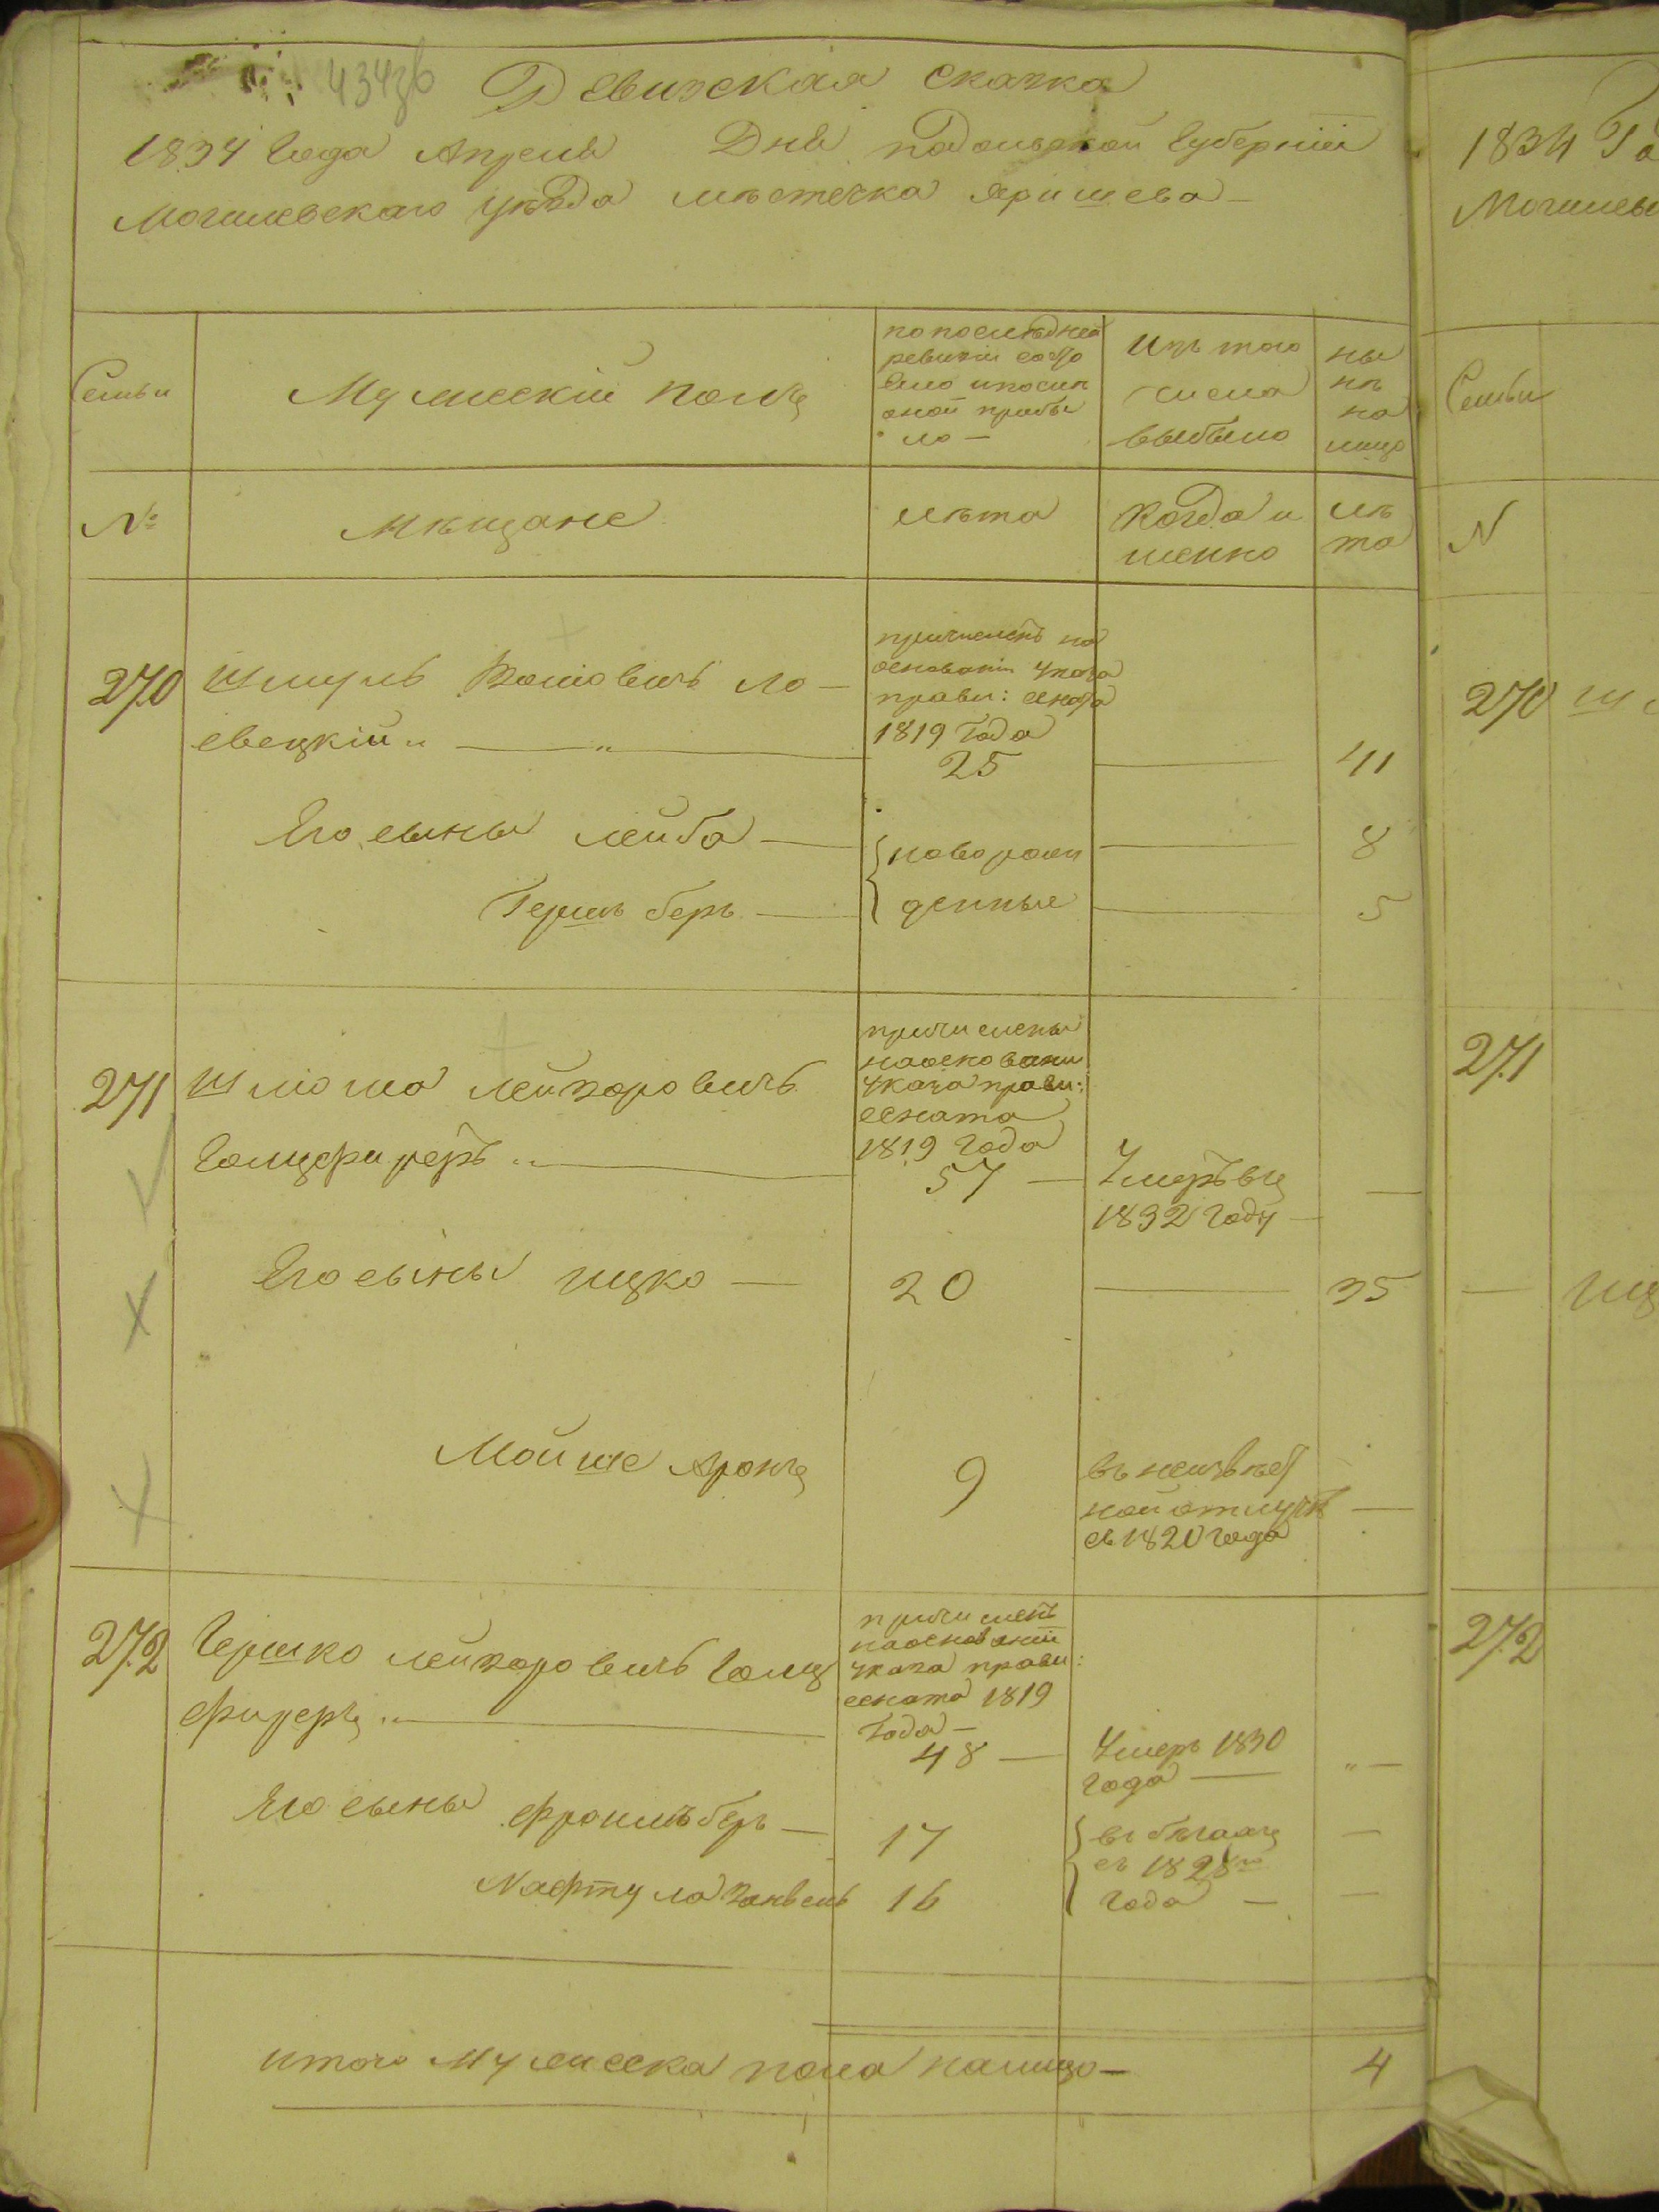 434 зв
Ревизская сказка
1834 Года Апреля Дня подольской Губернии
Могилевскаго уѣзда мѣстечка яришева —
Семьи
Мужескiй полъ
по последней
ревизiи состо
яло и посли
оной прибы
ло —
Изъ того
числа
выбыло
ны
нѣ
на
лицо
№
мѣщане
лѣта
Когда и
менно
лѣ
та
270
Шмуль Iосiовичъ ло —
евецкiй
причисленъ на
основанiи указа
прави: сената
1819 Года
25
41
Его сыны лейба —
новорож
8
Гершъ беръ —
денные
5
271
Шлiома лейзоровичъ
Голцфиреръ
причислены
на основани
указа прави:
сената
1819 Года
57 —
Умеръ въ
1832 Году —
Его сыны ицко —
20
35
Мойше Аронъ
9
въ неизвѣст
ной отлучкѣ
съ 1820 Года
272
Гершко лейзоровичъ Голц
фиреръ
причисленъ
на основанiи
указа прави:
сената 1819
Года —
48 —
Умеръ 1830
Года —
Его сыны Фроимъ беръ —
17
въ бѣгахъ
съ 1828го
Года —
Нафтула Занвель
16
итого Мужеска пола налицо —
4
1834 Го
Могилевс
Семьи
N
270 Ш
271
— Иц
272